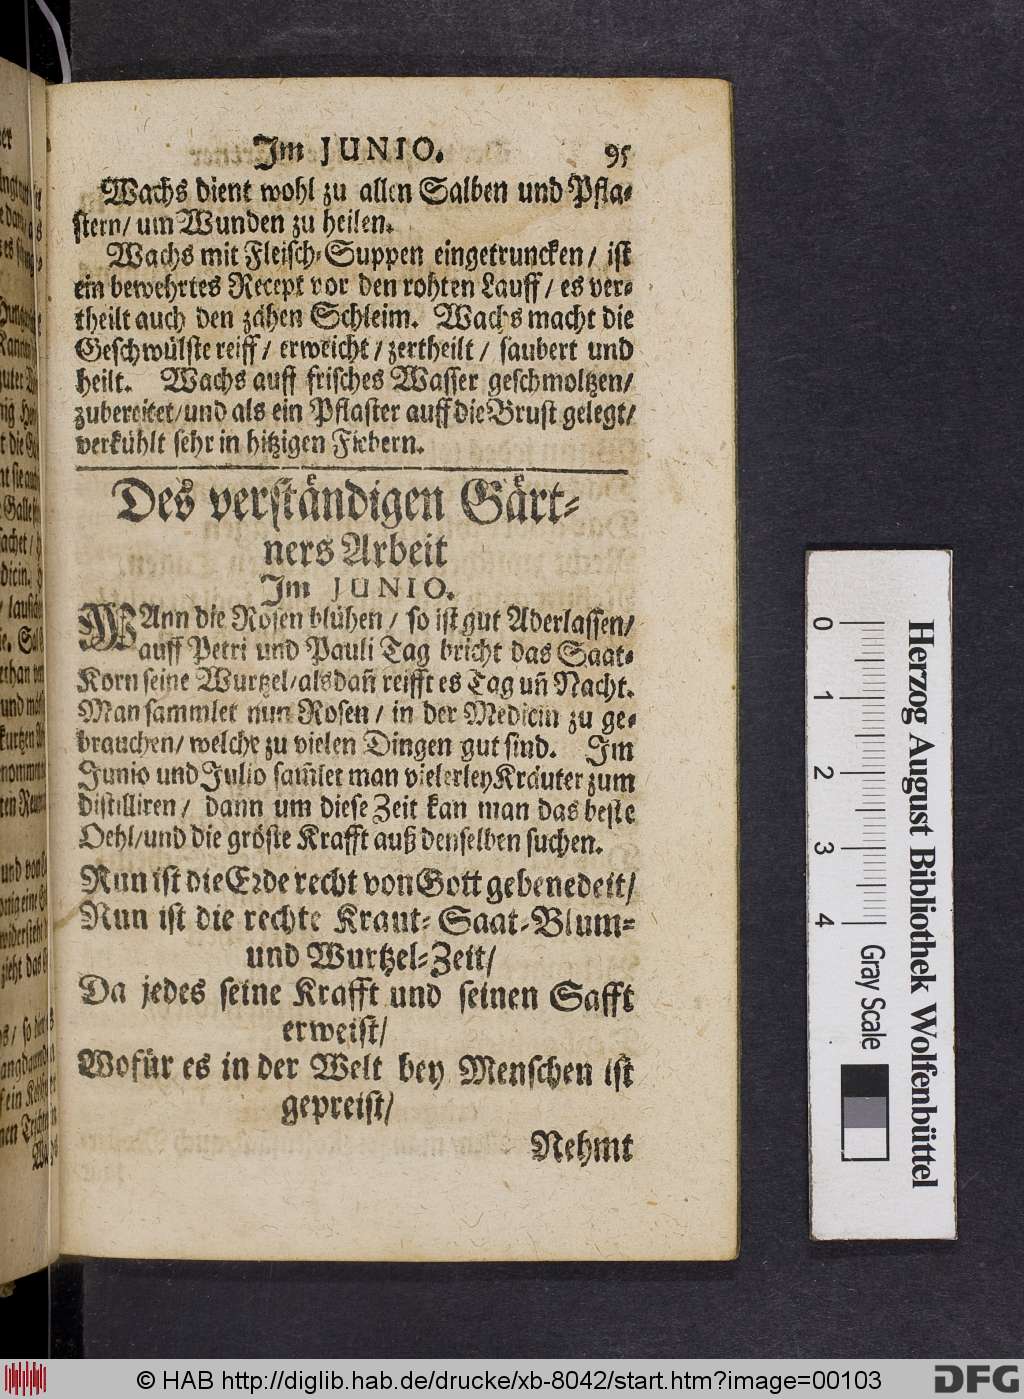 Im JUNIO. 95
Wachs dient wohl zu allen Salben und Pfla-
stern/ um Wunden zu heilen.
Wachs mit Fleisch-Suppen eingetruncken/ ist
ein bewehrtes Recept vor den rohten Lauff/ es ver-
theilt auch den zähen Schleim. Wachs macht die
Geschwülste reiff/ erweicht/ zertheilt/ saubert und
heilt. Wachs auff frisches Wasser geschmoltzen/
zubereitet/und als ein Pflaster auff die Brust gelegt/
verkühlt sehr in hitzigen Fiebern.
Des verständigen Gärt-
ners Arbeit
Im JUNIO.
WAnn die Rosen blühen/ so ist gut Aderlassen/
auff Petri und Pauli Tag bricht das Saat-
Korn seine Wurtzel/alsdañ reifft es Tag uñ Nacht.
Man sammlet nun Rosen/ in der Medicin zu ge-
brauchen/ welche zu vielen Dingen gut sind. Im
Junio und Julio sam̃let man vielerley Kräuter zum
distilliren/ dann um diese Zeit kan man das beste
Oehl/und die gröste Krafft auß denselben suchen.
Nun ist die Erde recht von Gott gebenedeit/
Nun ist die rechte Kraut- Saat-Blum-
und Wurtzel-Zeit/
Da jedes seine Krafft und seinen Safft
erweist/
Wofür es in der Welt bey Menschen ist
gepreist/
Nehmt
0 1 2 3 4 Gray Scale
Herzog August Bibliothek Wolfenbüttel
© HAB http://diglib.hab.de/drucke/xb-8042/start.htm?image=00103
DFG